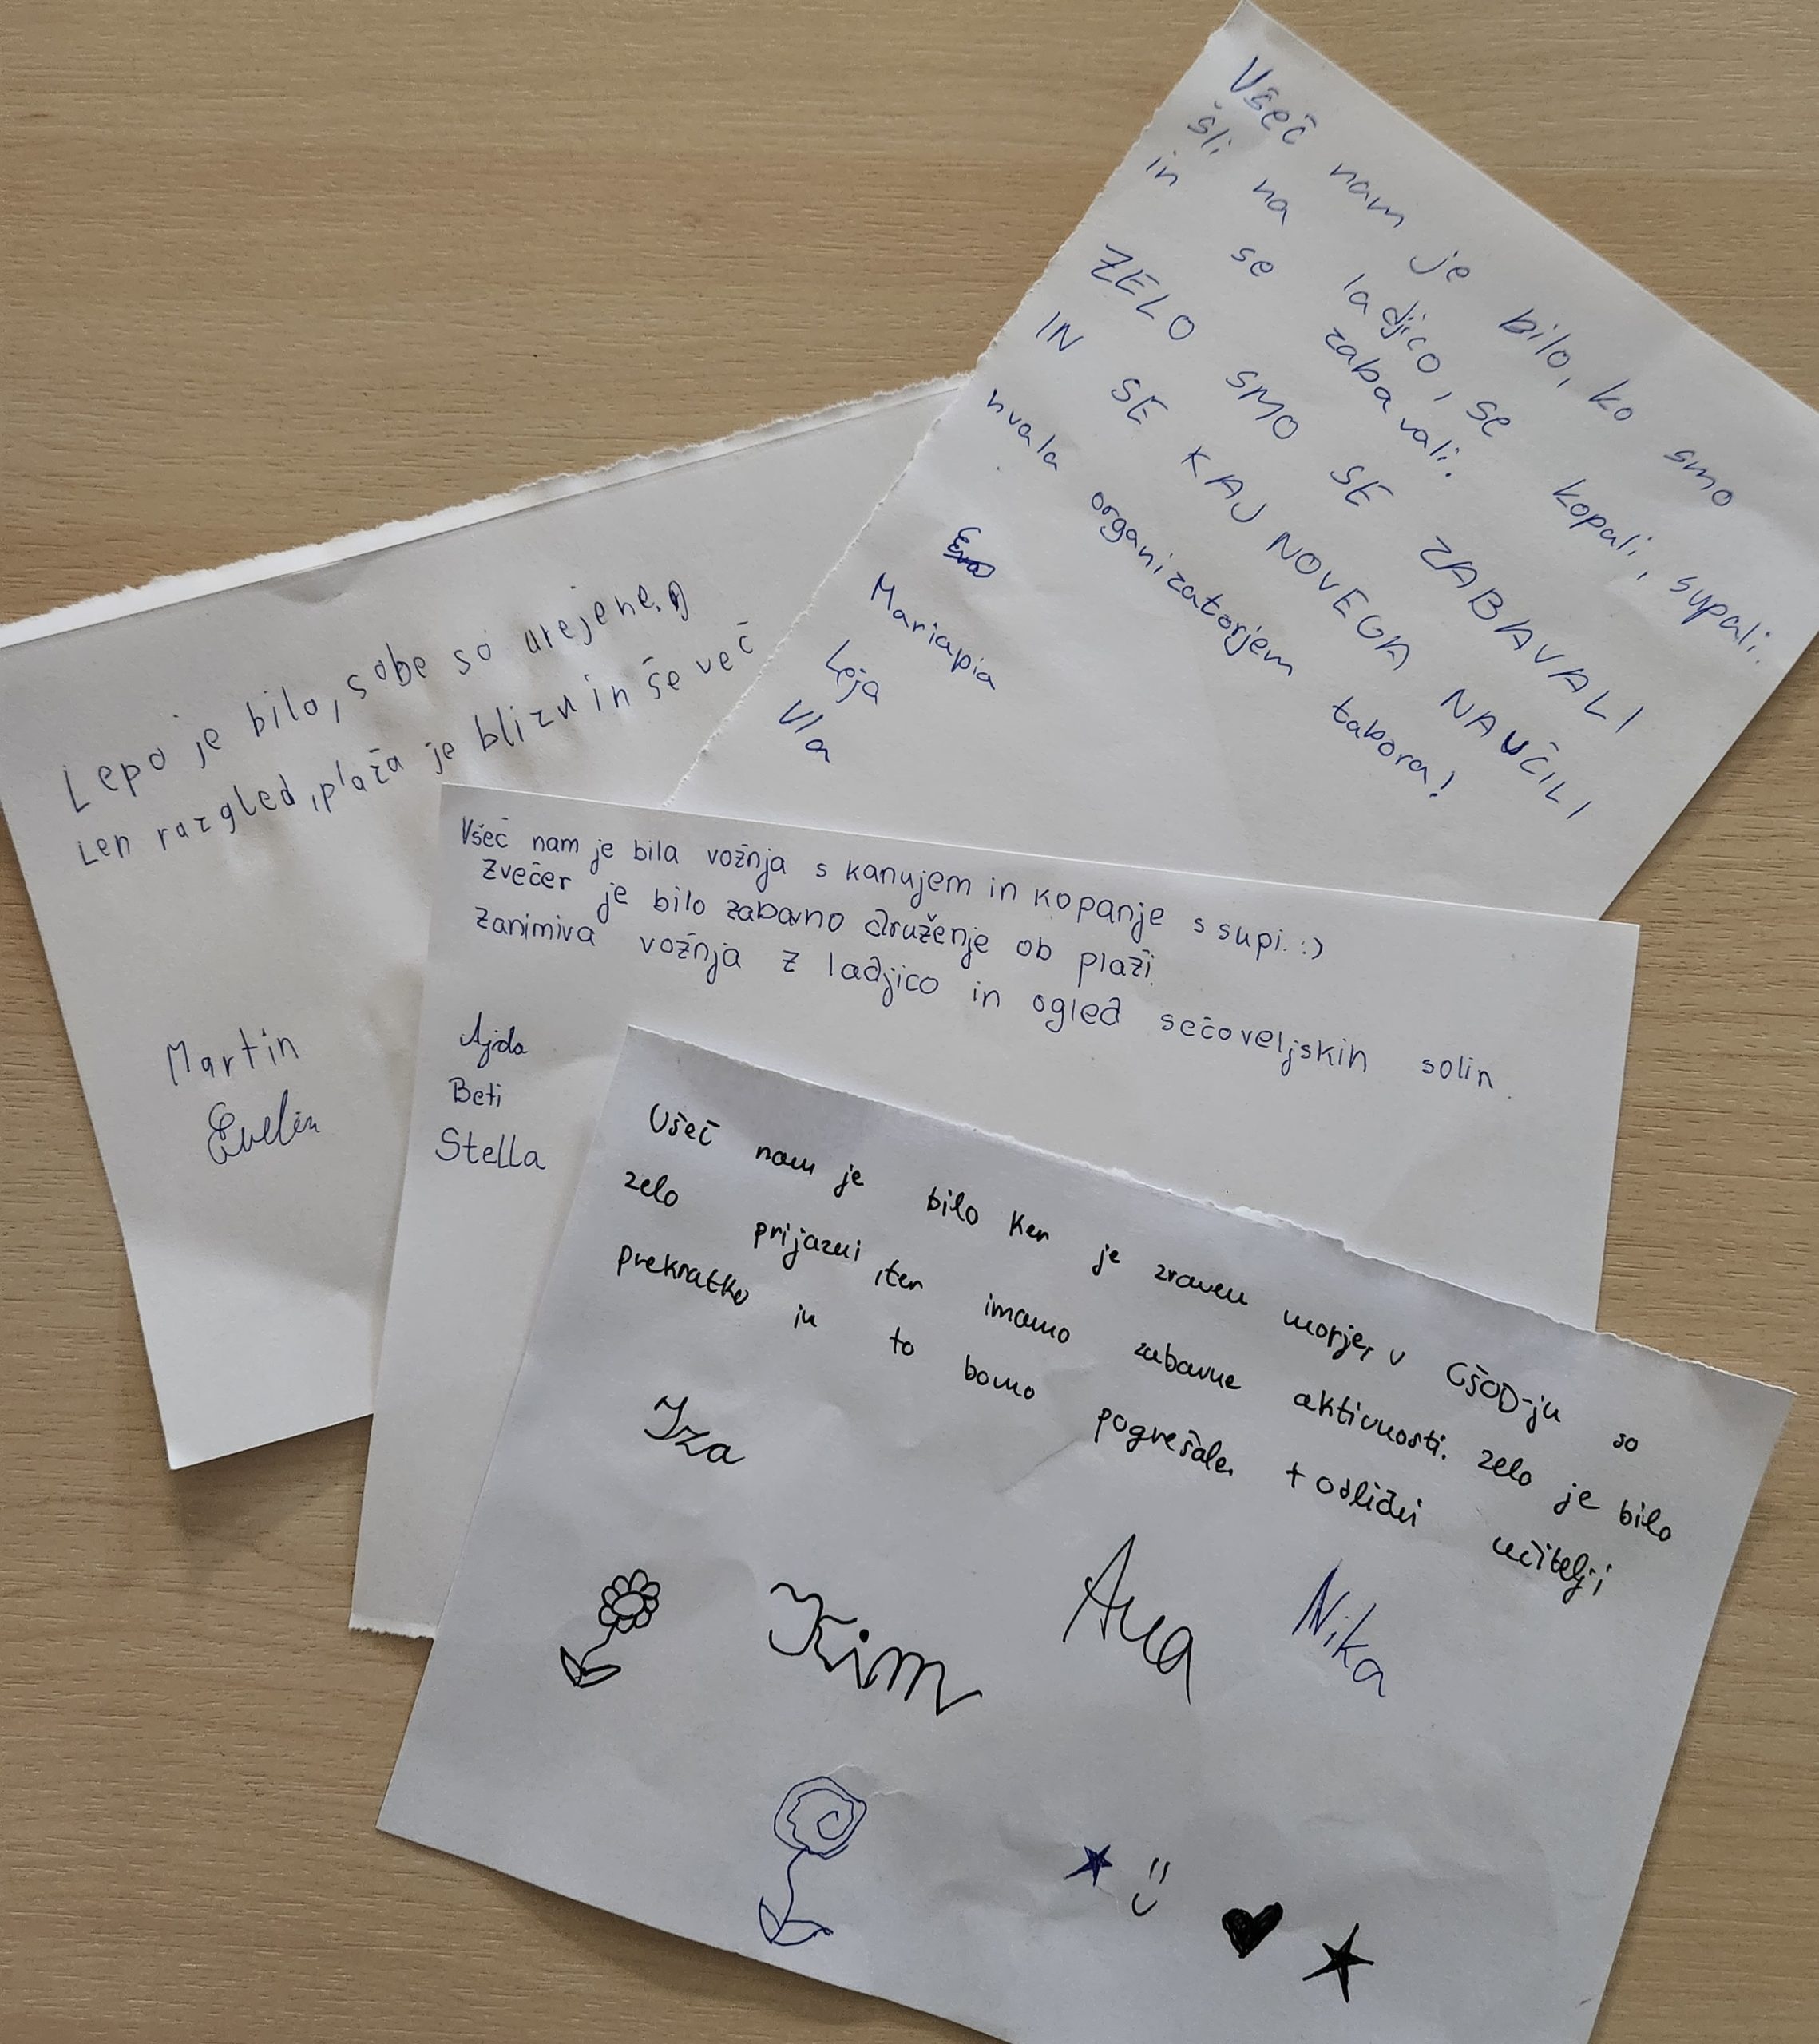 Všeč nam je bilo, ko smo
šli na ladjico, se kopali, supali.
in se zabavali.
ZELO SMO SE ZABAVALI
IN SE KAJ NOVEGA NAUČILI
hvala organizatorjem tabora!
Mariapia
Loja
Vla
Lepo je bilo, sobe so urejene.
Lep razgled, plaža je blizu in še več
Martin
Evelin
Všeč nam je bila vožnja s kanujem in kopanje s supi. :)
Zvečer je bilo zabavno druženje ob plaži.
Zanimiva vožnja z ladjico in ogled sečoveljskih solin.
Ajda
Beti
Stella
Všeč nam je bilo ker je zraven morje, v CŠOD-ju so
zelo prijazni, ter imamo zabavne aktivnosti. zelo je bilo
prekratko in to bomo pogrešale. + odlični učitelji
Iza
Kim
Ana
Nika